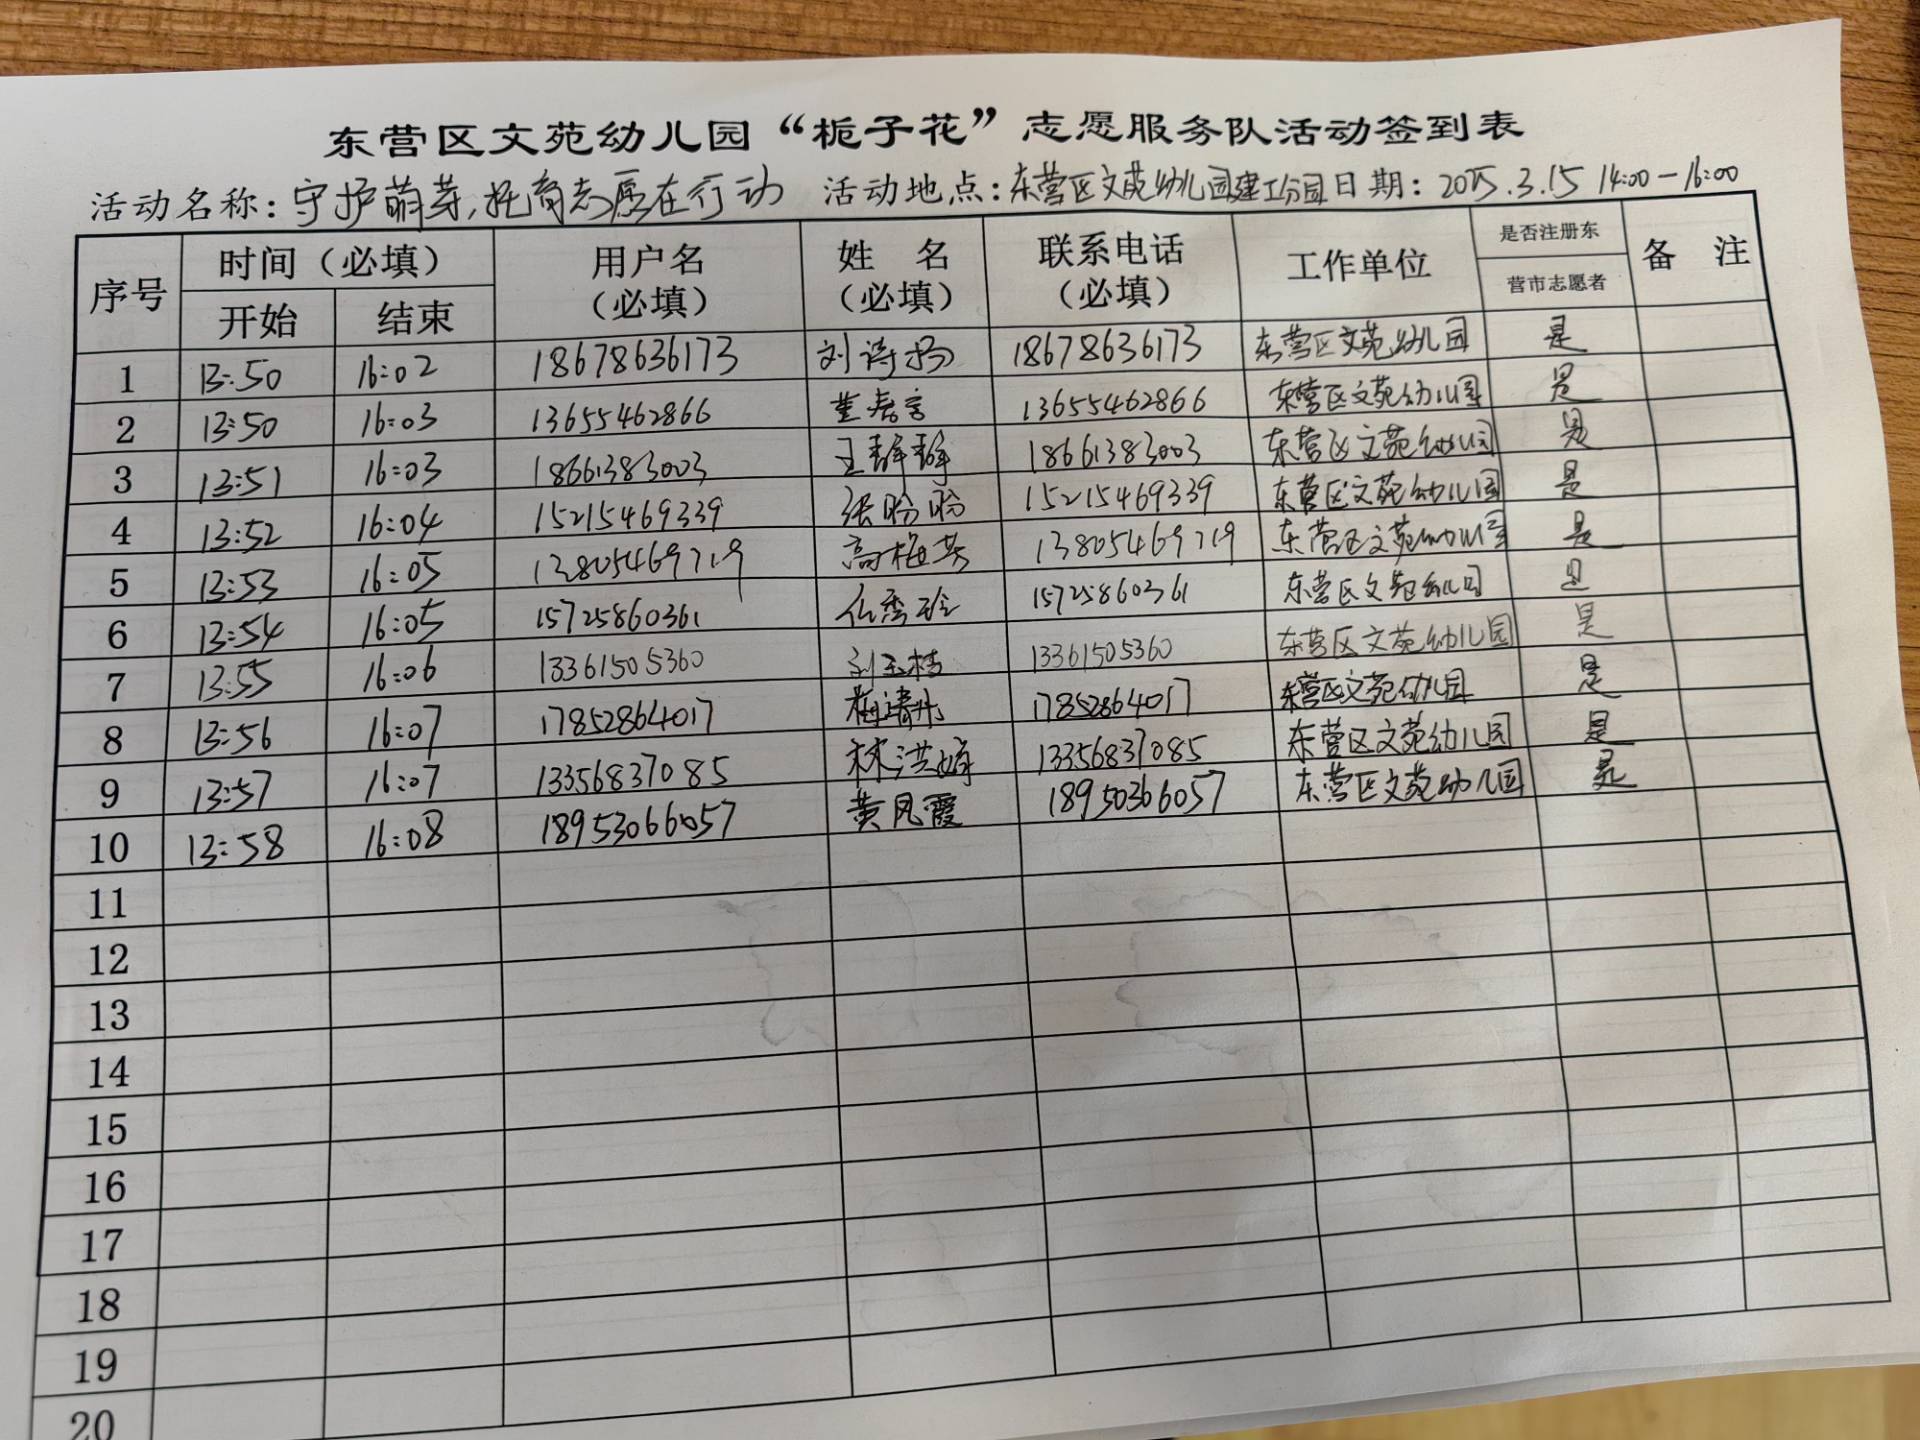 东营区文苑幼儿园“栀子花”志愿服务队活动签到表
活动名称：守护萌芽，托育志愿在行动 活动地点：东营区文苑幼儿园建工分园 日期：2025.3.15 14:00-16:00
序号 时间（必填） 用户名（必填） 姓 名（必填） 联系电话（必填） 工作单位 是否注册东营市志愿者 备 注
开始 结束
1 13:50 16:02 18678636173 刘诗扬 18678636173 东营区文苑幼儿园 是
2 13:50 16:03 13655462866 13655462866 东营区文苑幼儿园 是
3 13:51 16:03 18661383003 王静静 18661383003 东营区文苑幼儿园 是
4 13:52 16:04 15215469339 张盼盼 15215469339 东营区文苑幼儿园 是
5 13:53 16:05 13805469719 高梅芳 13805469719 东营区文苑幼儿园 是
6 13:54 16:05 15725860361 15725860361 东营区文苑幼儿园 是
7 13:55 16:06 13361505360 刘玉桂 13361505360 东营区文苑幼儿园 是
8 13:56 16:07 17852864017 17852864017 东营区文苑幼儿园 是
9 13:57 16:07 13356837085 林洪婷 13356837085 东营区文苑幼儿园 是
10 13:58 16:08 18953066057 黄凤霞 18950366057 东营区文苑幼儿园 是
11
12
13
14
15
16
17
18
19
20